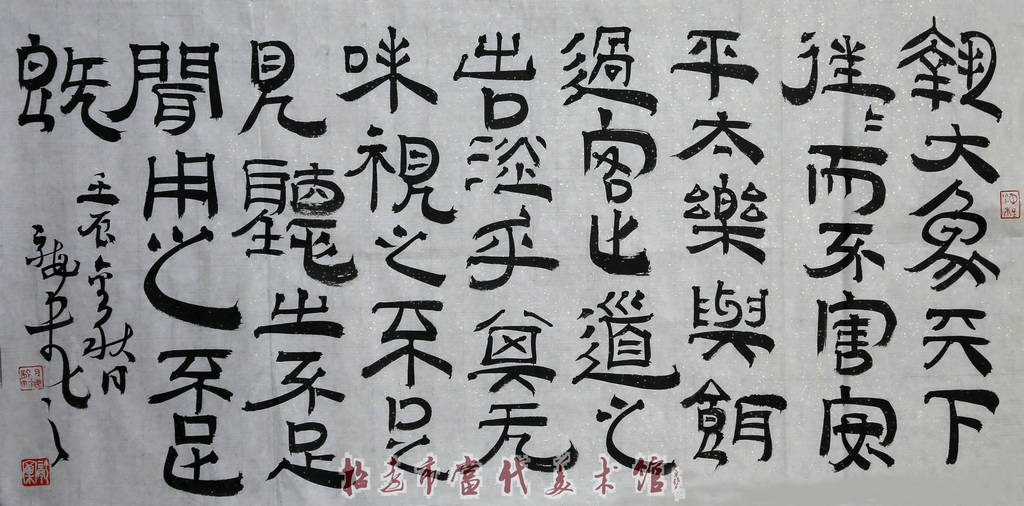 執大象天下
往〻而不害安
平太樂與餌
過客止道之
出口淡乎其无
味視之不足
見聽之不足
聞用之不足
既
壬辰金秋月
招远市当代美术馆